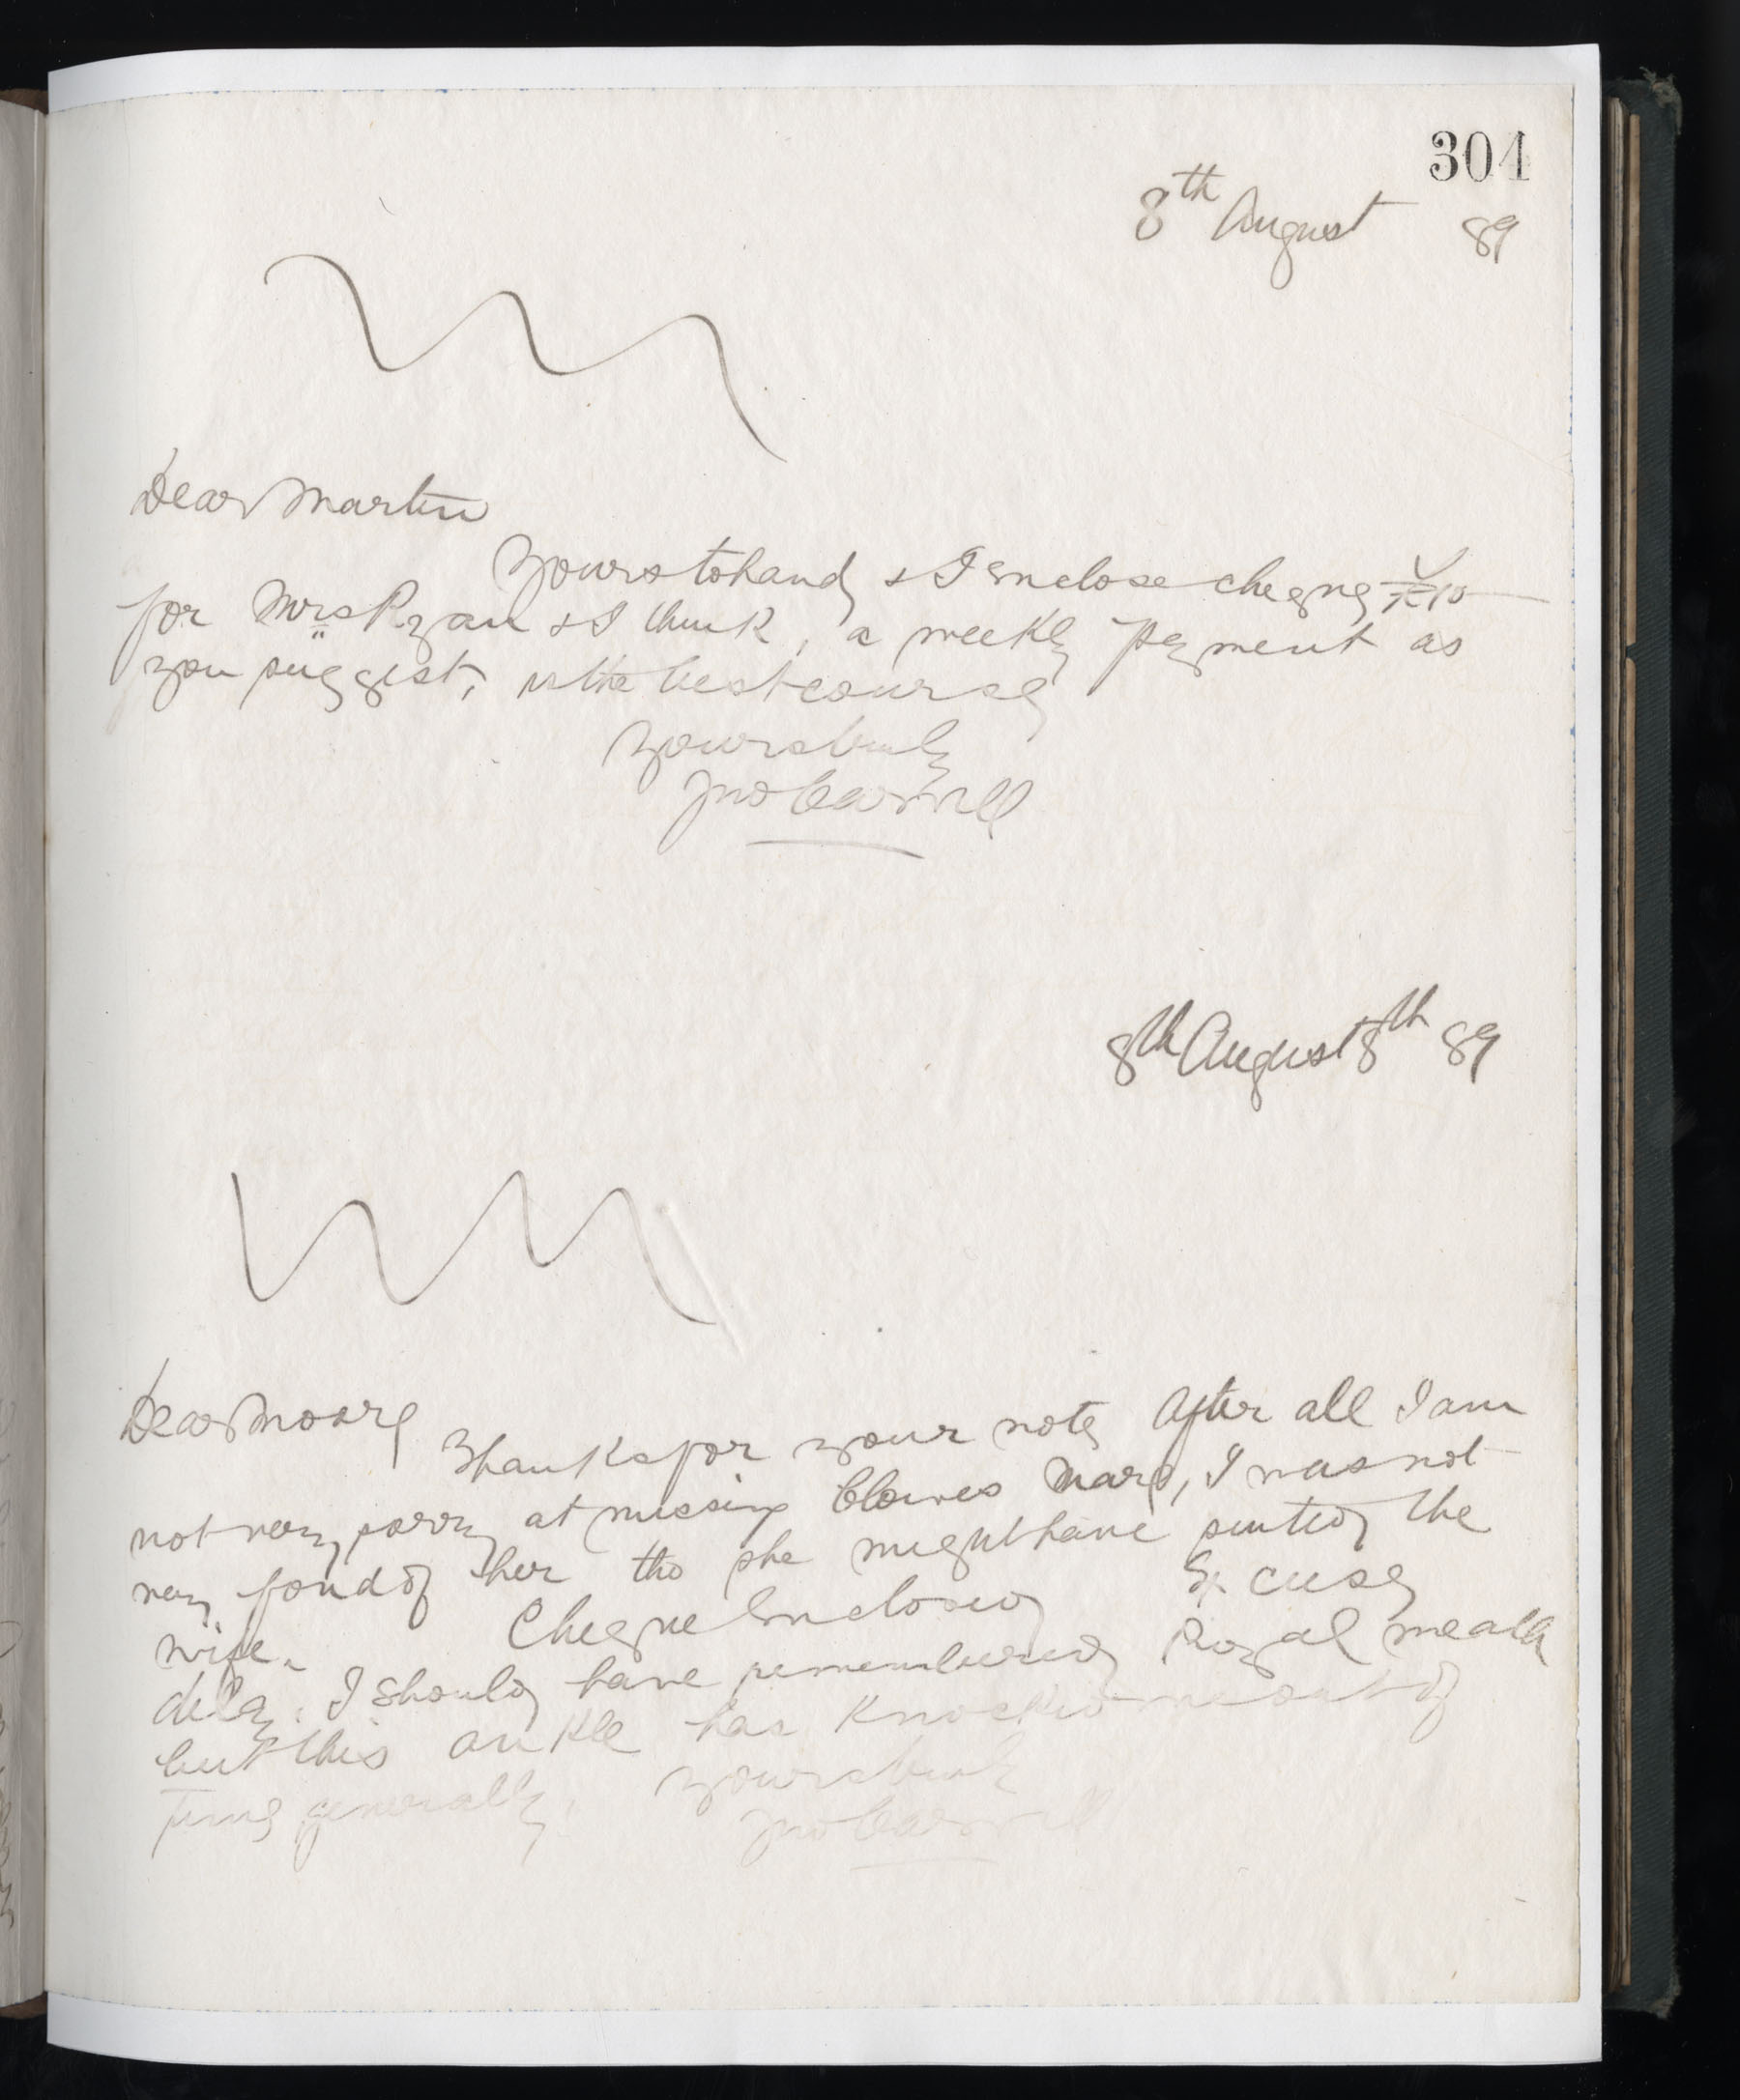 304
8th August 89
Dear Martin
Yours to hand & I enclose cheque £10
for Mrs Ryan & I think, a weekly payment as
you suggest, is the best course
Yours truly
Jno Carroll
8th August 8th 89
Dear Moore
Thanks for your note After all I am
not very sorry at missing mare, I was not
very fond of her tho she might have suited the
wife. Cheque Enclosed Excuse
delay. I should have remembered Royal Meath
but this ankle has knocked me out of
time generally. Yours truly
Jno Carroll